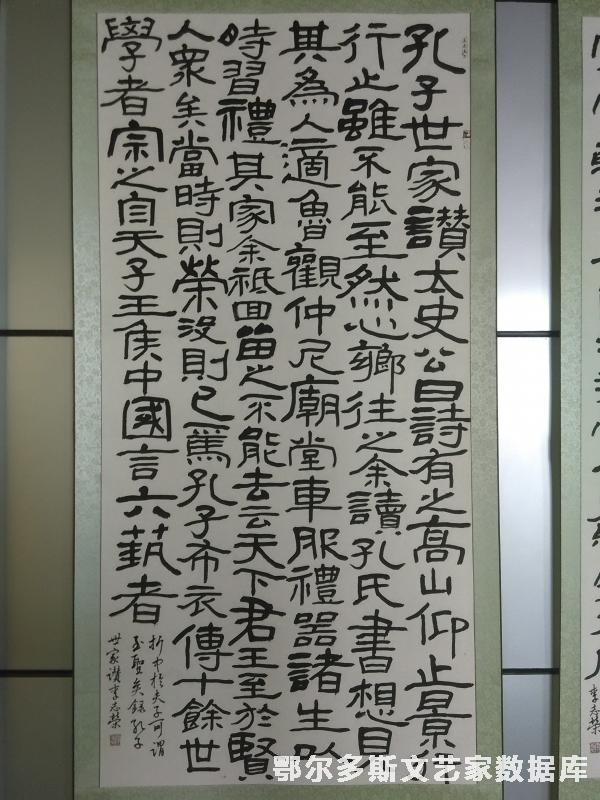 孔子世家讃太史公曰詩有之高山仰止景行
行止雖不能至然心鄉往之余讀孔氏書想見
其為人適魯觀仲尼廟堂車服禮器諸生以
時習禮其家余祗回留之不能去云天下君王至於賢
人衆矣當時則榮没則已焉孔子布衣傳十餘世
學者宗之自天子王侯中國言六藝者
折中於夫子可謂
至聖矣錄孔子
世家讃李志榮
李志榮
鄂尔多斯文艺家数据库